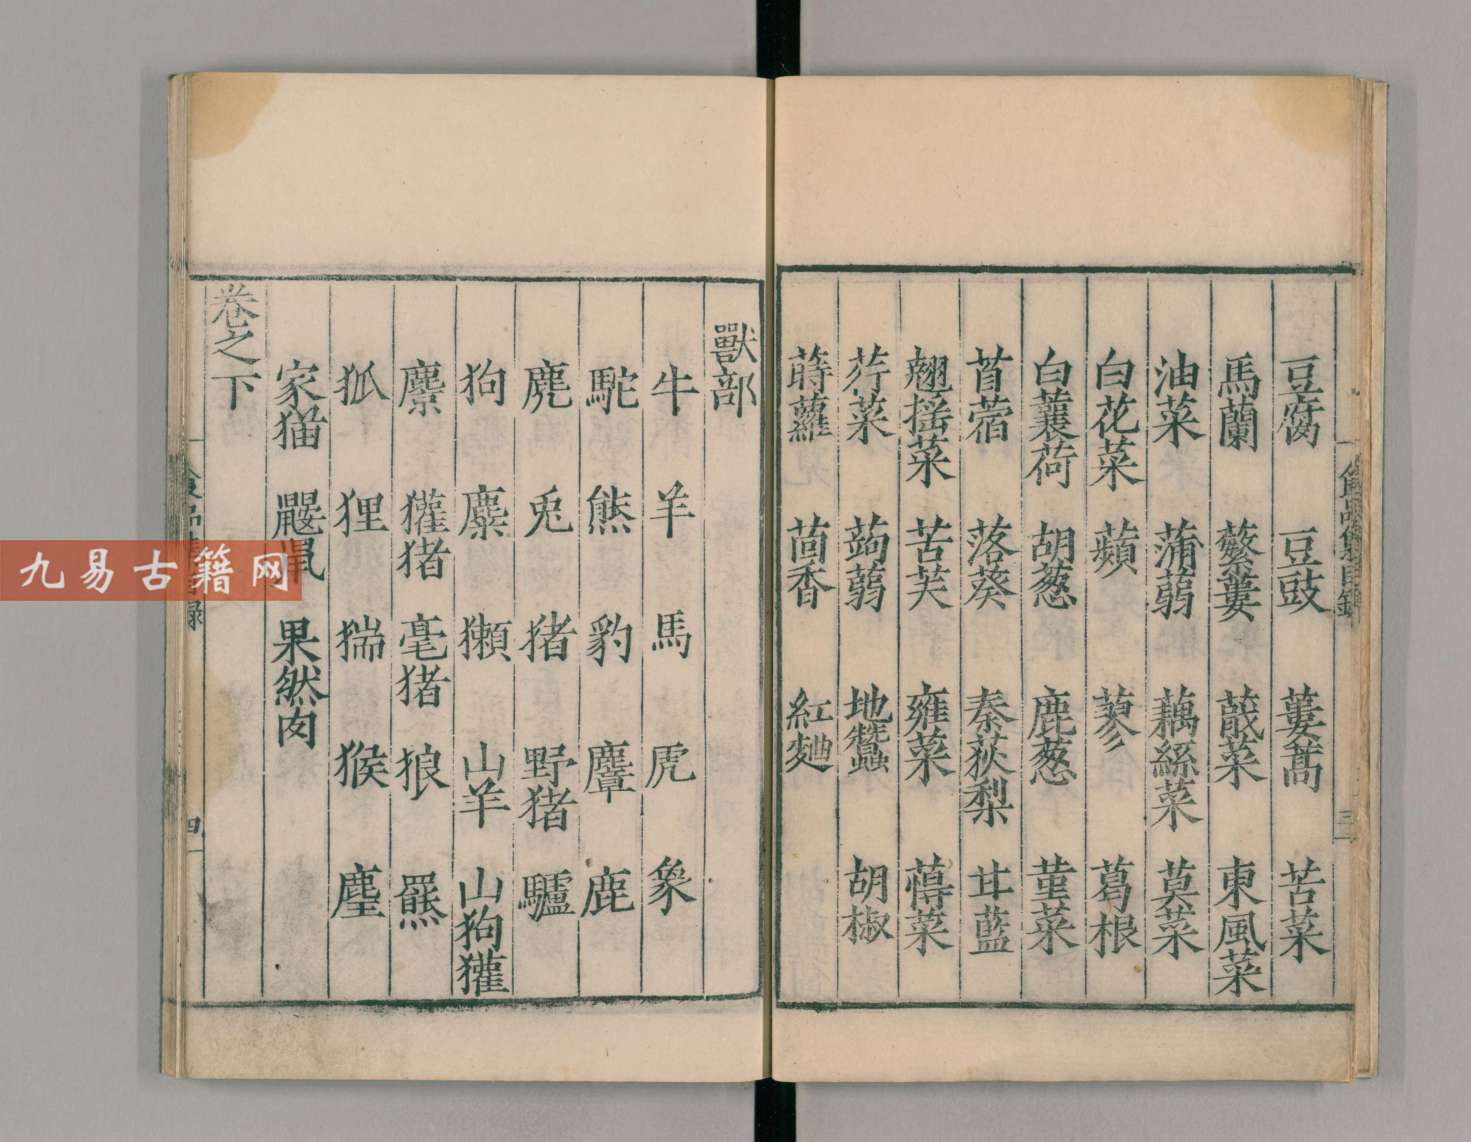 豆腐 豆豉 蔞蒿 苦菜
馬蘭 蘩蔞 蕺菜 東風菜
油菜 蒲蒻 藕絲菜 莫菜
白花菜 蘋 蓼 葛根
白蘘荷 胡葱 鹿葱 菫菜
苜蓿 落葵 秦荻梨 甘藍
翹摇菜 苦芺 雍菜 蓴菜
荇菜 蒟蒻 地蠶 胡椒
蒔蘿 茴香 紅麯
食品集目錄
三
獸部
牛 羊 馬 虎 象
駝 熊 豹 麞 鹿
麂 兎 猪 野猪 驢
狗 麋 獺 山羊 山狗獾
麖 獾猪 毫猪 狼 羆
狐 狸 猯 猴 麈
家猫 鼴鼠 果然肉
卷之下
四
九易古籍网